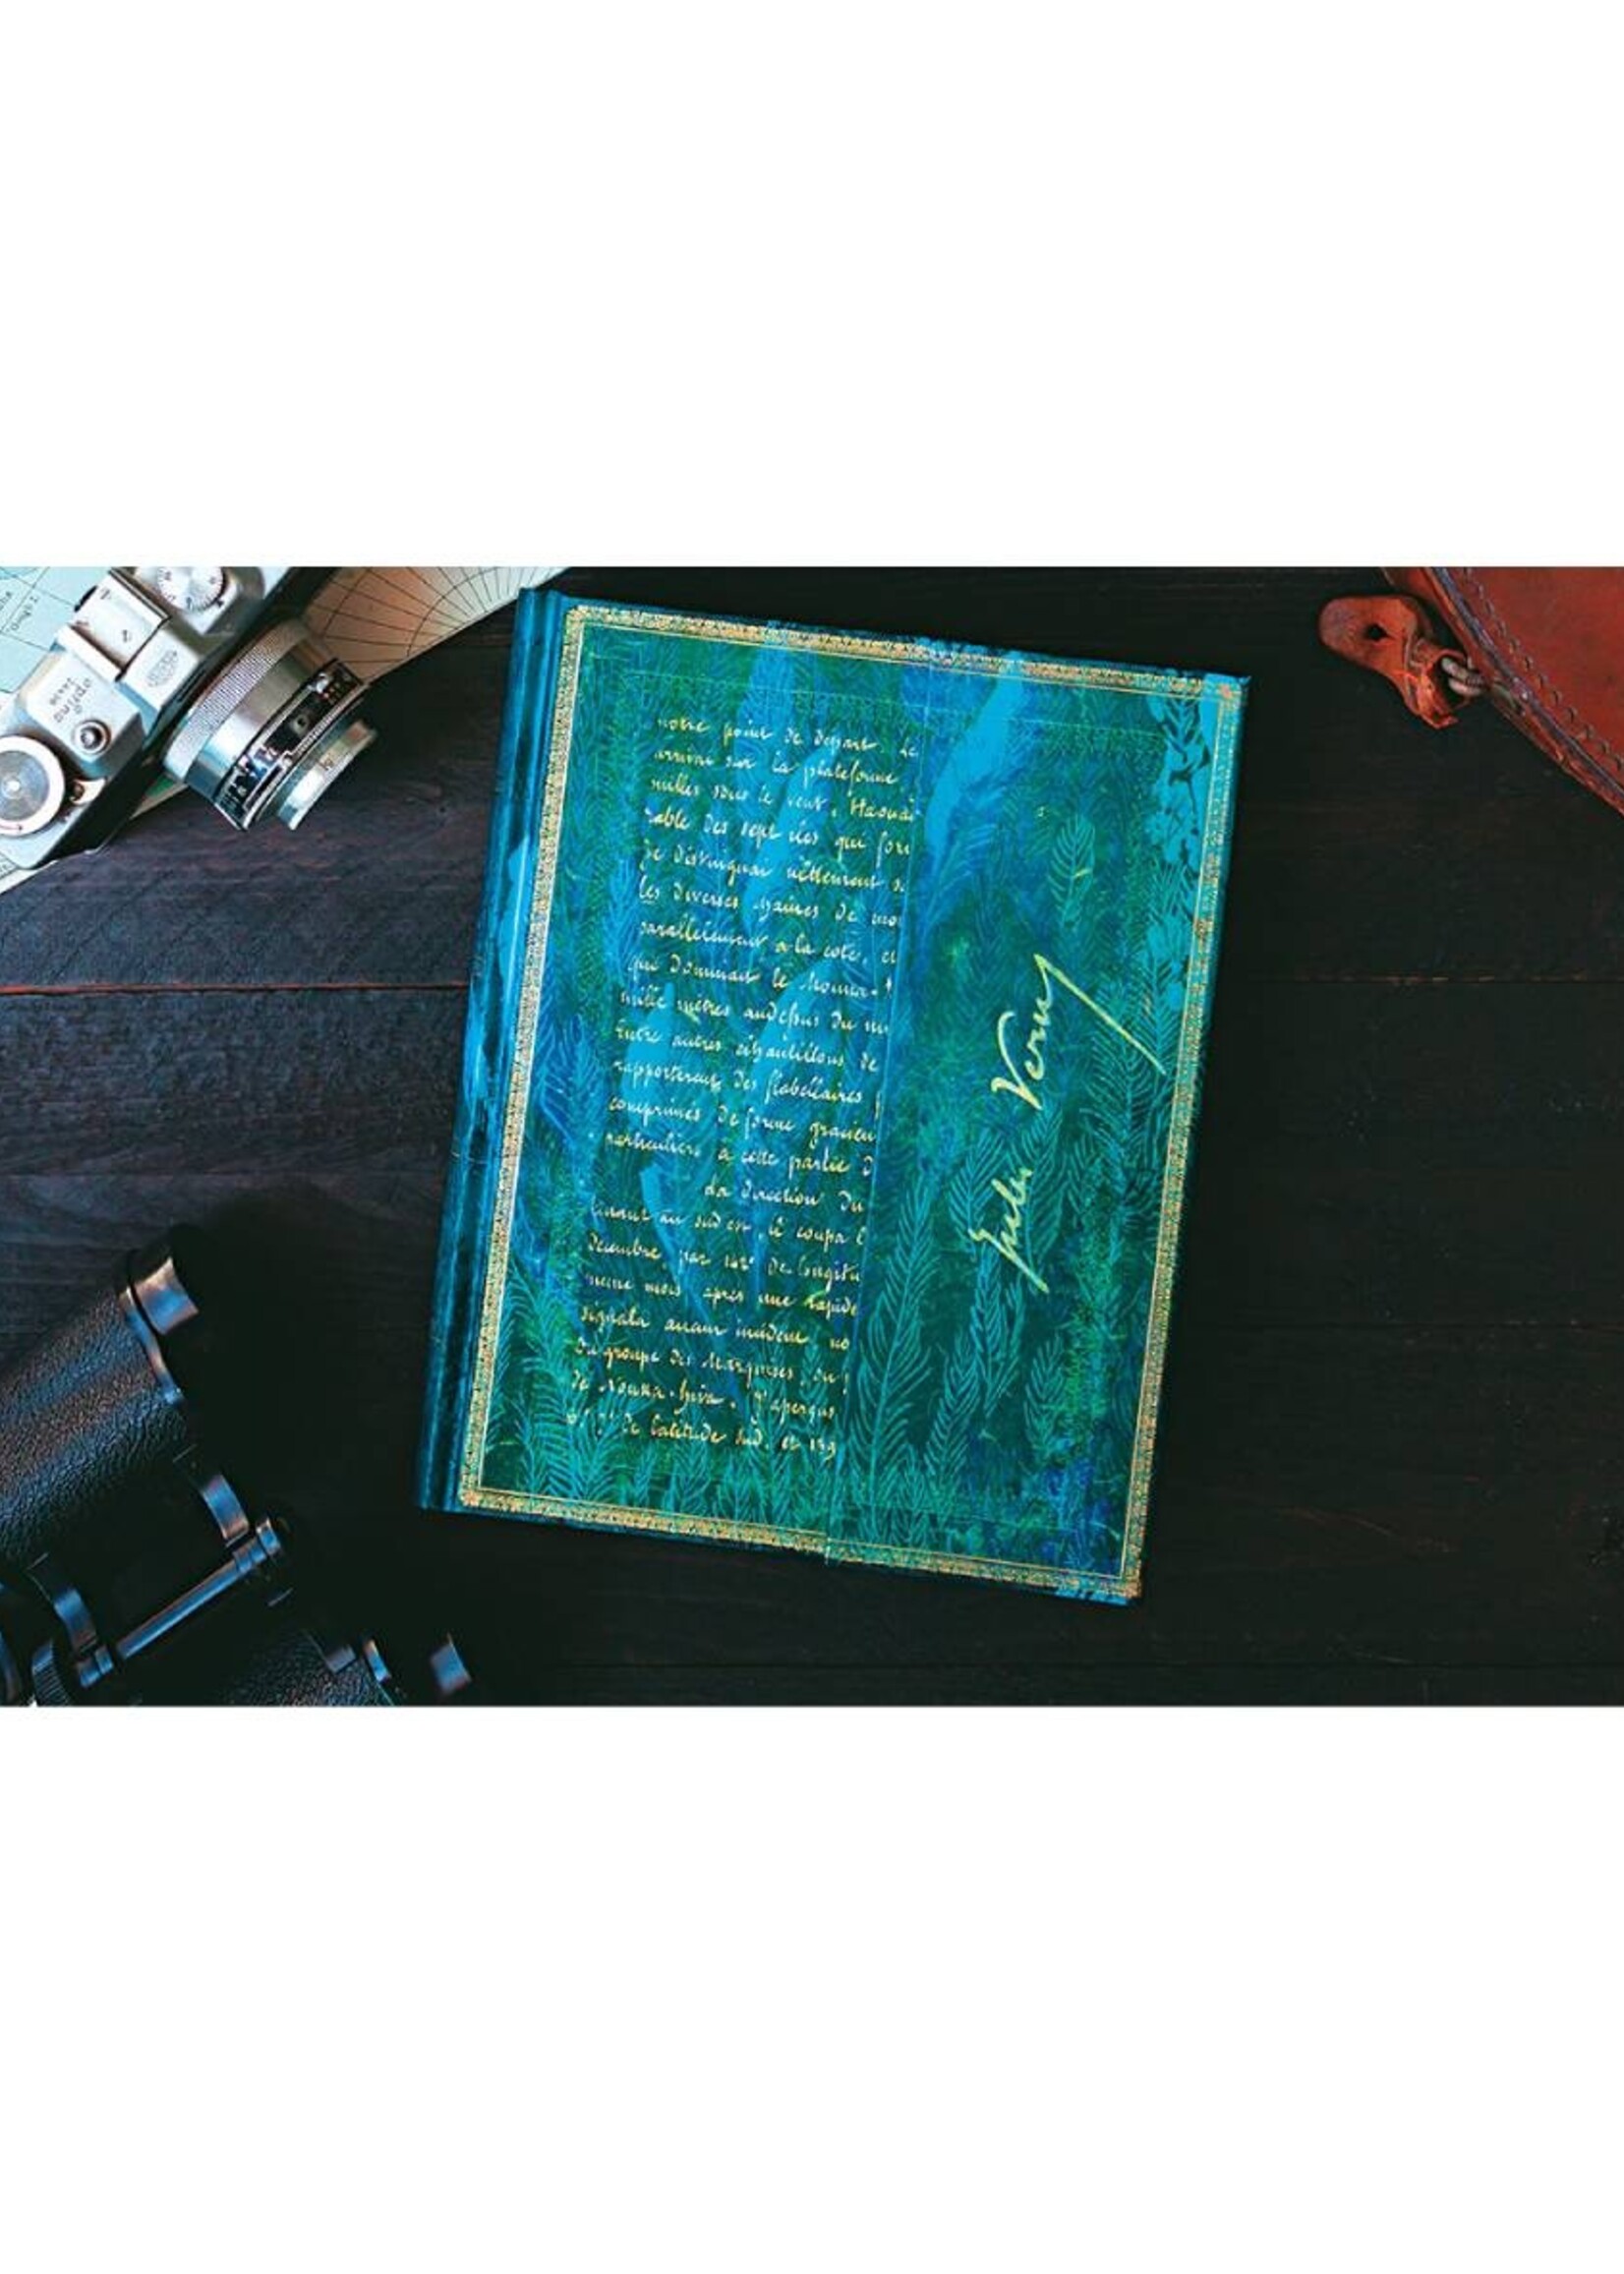 notre point de départ. Le
arrivai sur la plateforme,
milles sous le vent, Haouaï
rable des sept îles qui for
Je distinguai nettement s
les diverses chaînes de mo
parallèlement à la côte, et
qui dominait le Mouna-
mille mètres audessus du ni
Entre autres échantillons de
rapportèrent des flabellaires
comprimés de forme gracieu
particuliers à cette partie d
La direction du
tinant au sud est, il coupa l
Décembre par 142° de longitu
même mois après une rapide
signala aucun incident, no
du groupe des Marquises, ou
de Nouka-hiva. J'aperçus
de latitude sud, et 139
Jules Verne